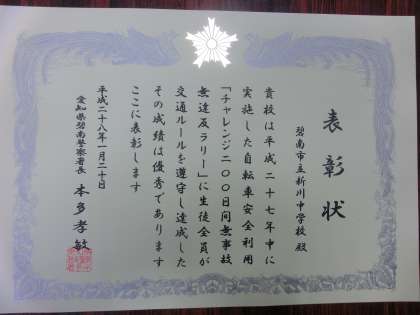 表彰状
碧南市立新川中学校殿
貴校は平成二十七年中に
実施した自転車安全利用
「チャレンジ二〇〇日間無事故
無違反ラリー」に生徒全員が
交通ルールを遵守し達成した
その成績は優秀であります
ここに表彰します
平成二十八年一月二十日
愛知県碧南警察署長 本多孝敏